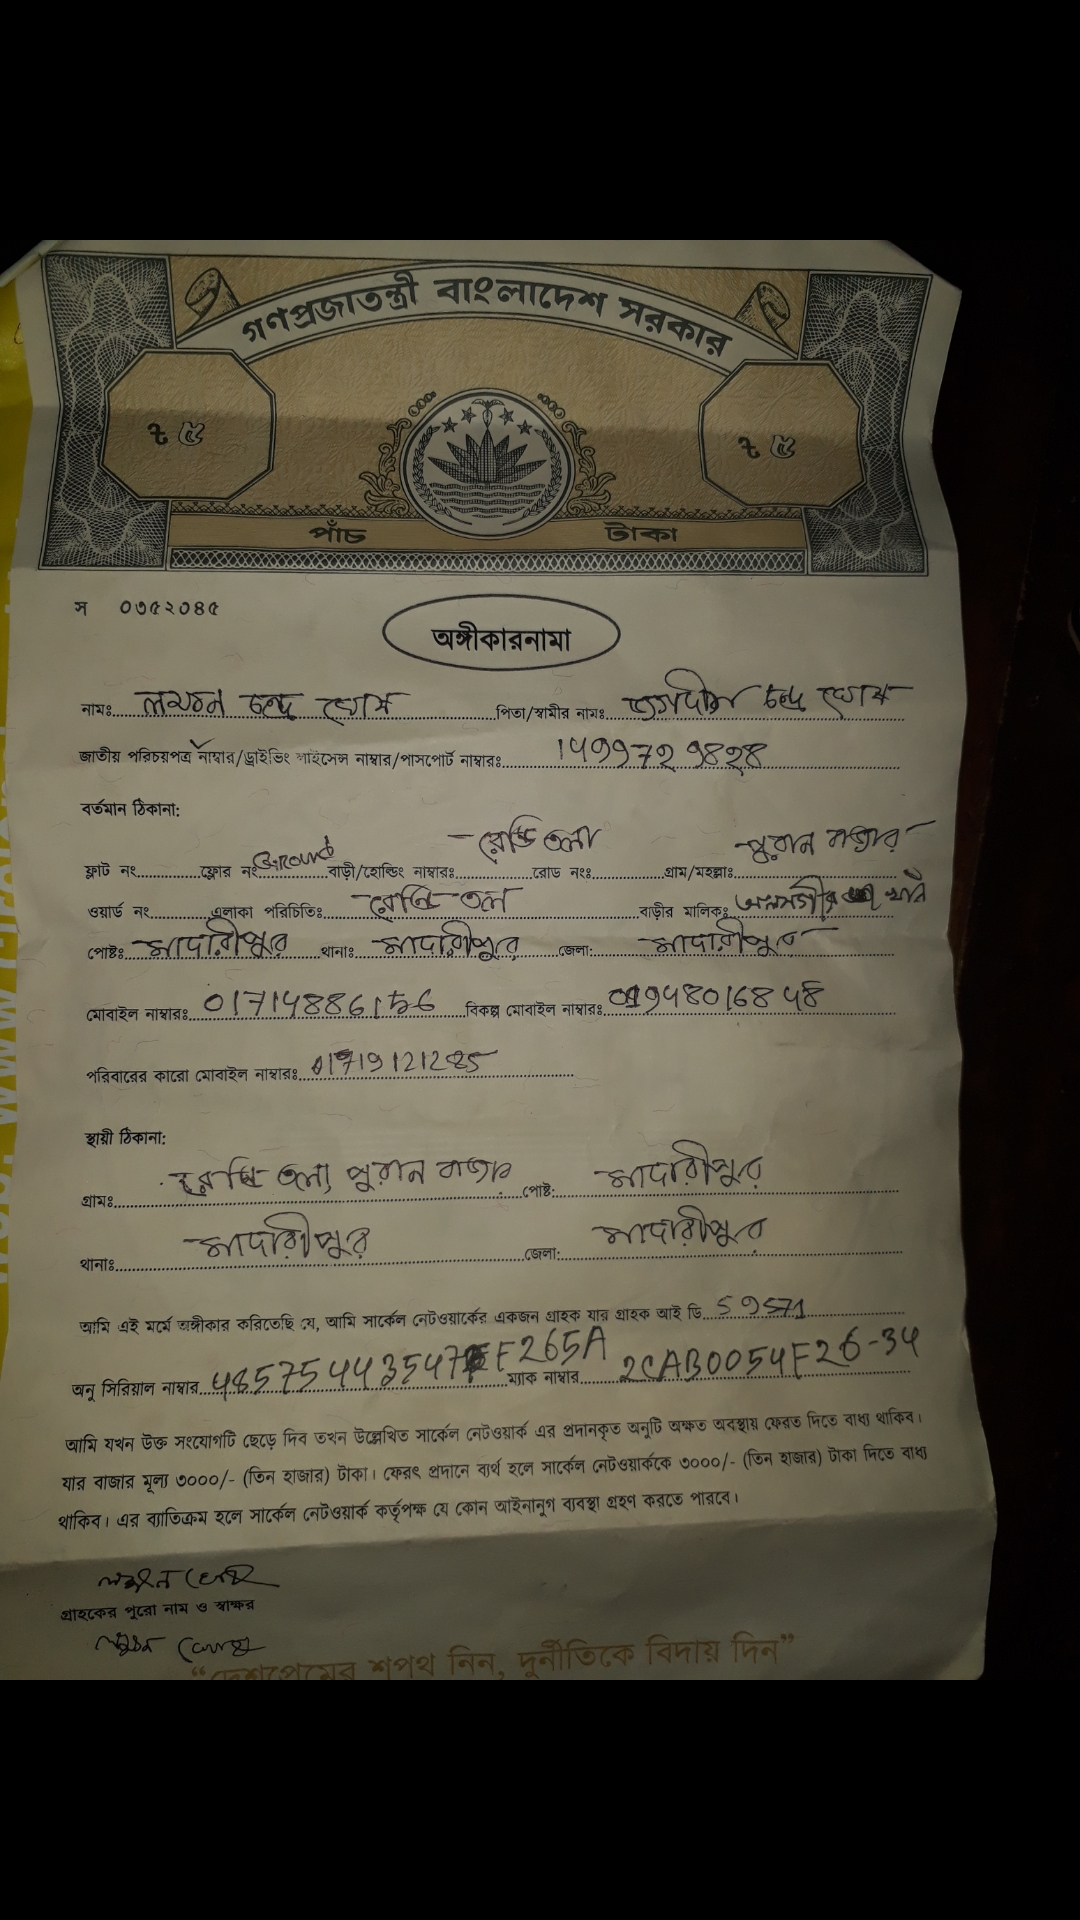 গণপ্রজাতন্ত্রী বাংলাদেশ সরকার
৳ ৫ ৳ ৫
পাঁচ টাকা
স ০৩৫২০৪৫
অঙ্গীকারনামা
নামঃ লক্ষন চন্দ্র ঘোষ পিতা/স্বামীর নামঃ জগদীশ চন্দ্র ঘোষ
জাতীয় পরিচয়পত্র নাম্বার/ড্রাইভিং লাইসেন্স নাম্বার/পাসপোর্ট নাম্বারঃ
বর্তমান ঠিকানা:
ফ্লাট নং ফ্লোর নং Ground বাড়ী/হোল্ডিং নাম্বারঃ রোড নংঃ গ্রাম/মহল্লাঃ পুরান বাজার
ওয়ার্ড নং এলাকা পরিচিতিঃ বাড়ীর মালিকঃ
পোষ্টঃ মাদারীপুর থানাঃ মাদারীপুর জেলা: মাদারীপুর
মোবাইল নাম্বারঃ বিকল্প মোবাইল নাম্বারঃ 01948016848
পরিবারের কারো মোবাইল নাম্বারঃ
স্থায়ী ঠিকানা:
গ্রামঃ পুরান বাজার পোষ্ট: মাদারীপুর
থানাঃ মাদারীপুর জেলা: মাদারীপুর
আমি এই মর্মে অঙ্গীকার করিতেছি যে, আমি সার্কেল নেটওয়ার্কের একজন গ্রাহক যার গ্রাহক আই ডি 59571
অনু সিরিয়াল নাম্বার ম্যাক নাম্বার 2CAB0054F26-34
আমি যখন উক্ত সংযোগটি ছেড়ে দিব তখন উল্লেখিত সার্কেল নেটওয়ার্ক এর প্রদানকৃত অনুটি অক্ষত অবস্থায় ফেরত দিতে বাধ্য থাকিব।
যার বাজার মূল্য ৩০০০/- (তিন হাজার) টাকা। ফেরৎ প্রদানে ব্যর্থ হলে সার্কেল নেটওয়ার্ককে ৩০০০/- (তিন হাজার) টাকা দিতে বাধ্য
থাকিব। এর ব্যাতিক্রম হলে সার্কেল নেটওয়ার্ক কর্তৃপক্ষ যে কোন আইনানুগ ব্যবস্থা গ্রহণ করতে পারবে।
গ্রাহকের পুরো নাম ও স্বাক্ষর
“দেশপ্রেমের শপথ নিন, দুর্নীতিকে বিদায় দিন”